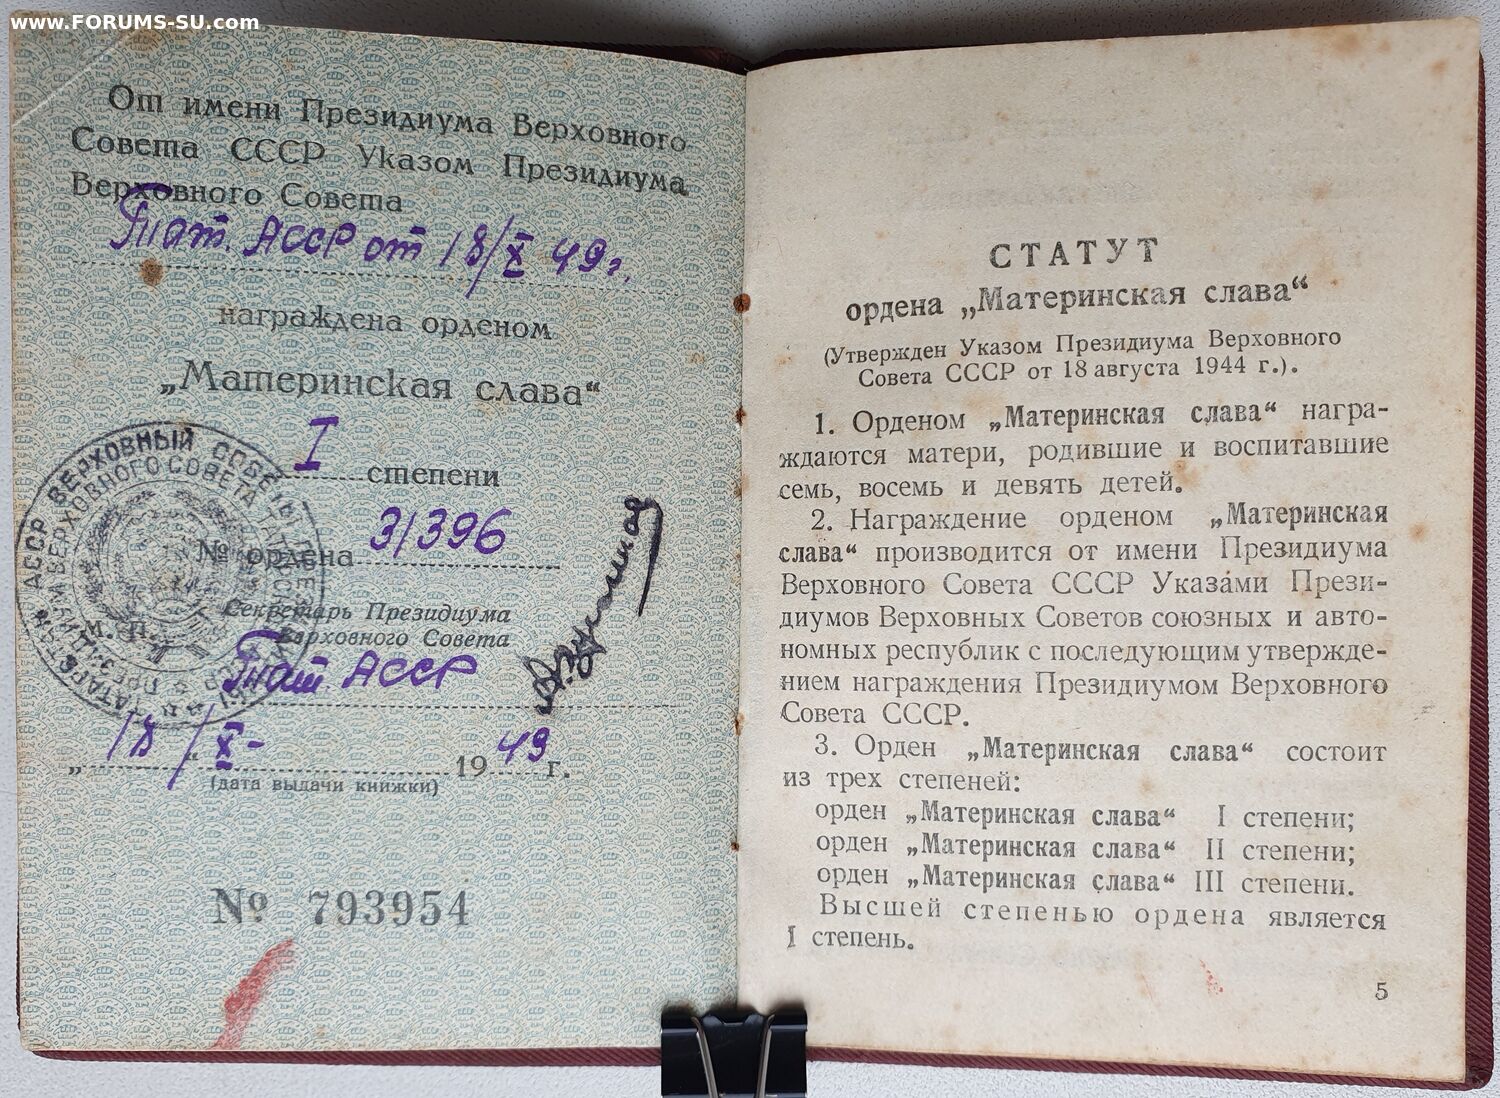 www.FORUMS-SU.com
От имени Президиума Верховного
Совета СССР Указом Президиума
Верховного Совета
Тат. АССР от 18/X 49г.
награждена орденом
„Материнская слава“
I степени
№ ордена 31396
Секретарь Президиума
Верховного Совета
М. П.
Тат. АССР
„18/X- 1949 г.
(дата выдачи книжки)
№ 793954
СТАТУТ
ордена „Материнская слава“
(Утвержден Указом Президиума Верховного
Совета СССР от 18 августа 1944 г.).
1. Орденом „Материнская слава“ награ-
ждаются матери, родившие и воспитавшие
семь, восемь и девять детей.
2. Награждение орденом „Материнская
слава“ производится от имени Президиума
Верховного Совета СССР Указами Прези-
диумов Верховных Советов союзных и авто-
номных республик с последующим утвержде-
нием награждения Президиумом Верховного
Совета СССР.
3. Орден „Материнская слава“ состоит
из трех степеней:
орден „Материнская слава“ I степени;
орден „Материнская слава“ II степени;
орден „Материнская слава“ III степени.
Высшей степенью ордена является
I степень.
5